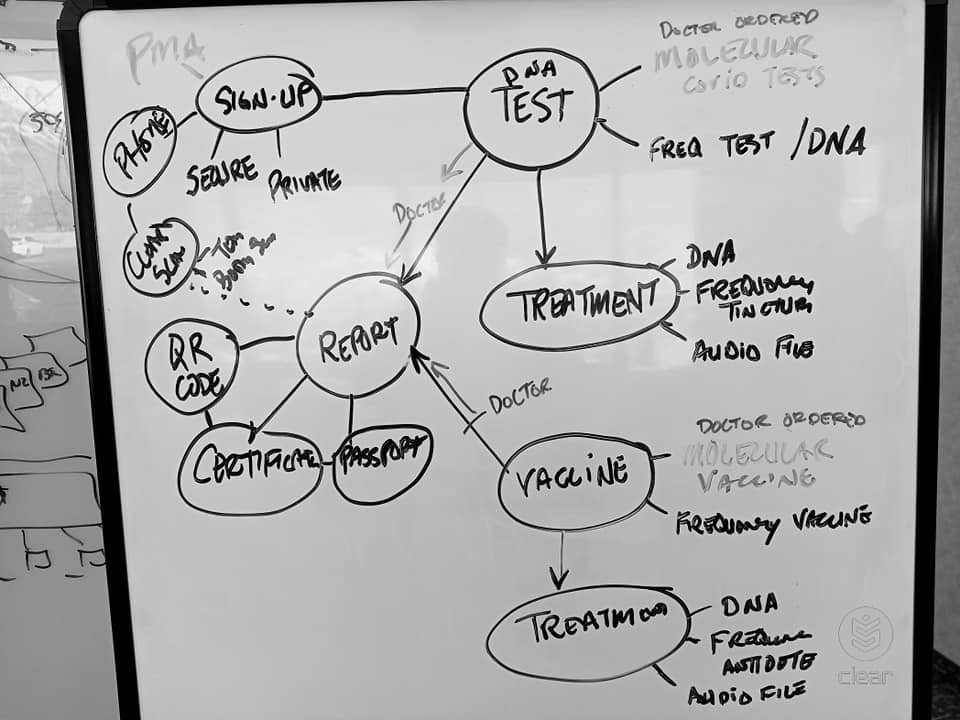 PMA
SIGN-UP
PHONE
SECURE
PRIVATE
DNA
TEST
DOCTOR ORDERED
MOLECULAR
COVID TESTS
FREQ TEST / DNA
DOCTOR
SCAN
REPORT
TREATMENT
DNA
FREQUENCY
TINCTURE
AUDIO FILE
QR
CODE
CERTIFICATE
PASSPORT
DOCTOR
VACCINE
DOCTOR ORDERED
MOLECULAR
VACCINE
FREQUENCY VACCINE
TREATMENT
DNA
FREQUENCY
ANTIDOTE
AUDIO FILE
clear